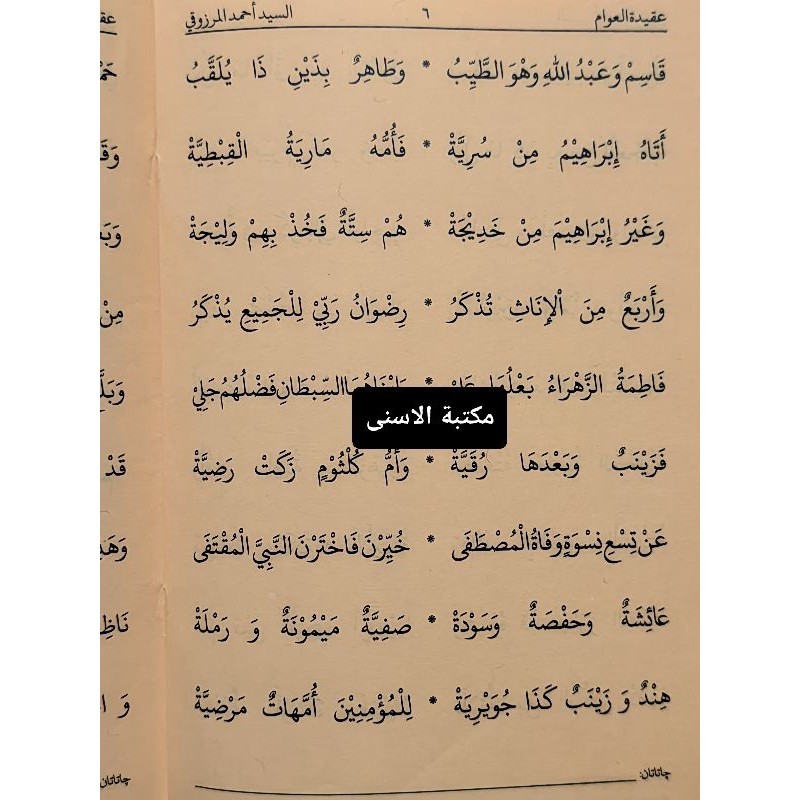 عقيدة العوام ٦ السيد أحمد المرزوقي
قَاسِمْ وَعَبْدُ اللهِ وَهْوَ الطَّيِّبُ * وَطَاهِرٌ بِذَيْنِ ذَا يُلَقَّبُ
أَتَاهُ إِبْرَاهِيْمُ مِنْ سُرِيَّةْ * فَأُمُّهُ مَارِيَةُ الْقِبْطِيَّةْ
وَغَيْرُ إِبْرَاهِيْمَ مِنْ خَدِيْجَةْ * هُمْ سِتَّةٌ فَخُذْ بِهِمْ وَلِيْجَةْ
وَأَرْبَعٌ مِنَ الْإِنَاثِ تُذْكَرُ * رِضْوَانُ رَبِّيْ لِلْجَمِيْعِ يُذْكَرُ
فَاطِمَةُ الزَّهْرَاءُ بَعْلُهَا * السِّبْطَانِ فَضْلُهُمُ جَلِيْ
مكتبة الاسنى
فَزَيْنَبٌ وَبَعْدَهَا رُقَيَّةْ * وَأُمُّ كُلْثُوْمٍ زَكَتْ رَضِيَّةْ
عَنْ تِسْعِ نِسْوَةٍ وَفَاةُ الْمُصْطَفَى * خُيِّرْنَ فَاخْتَرْنَ النَّبِيَّ الْمُقْتَفَى
عَائِشَةٌ وَحَفْصَةٌ وَسَوْدَةْ * صَفِيَّةٌ مَيْمُوْنَةٌ وَ رَمْلَةْ
هِنْدٌ وَ زَيْنَبٌ كَذَا جُوَيْرِيَةْ * لِلْمُؤْمِنِيْنَ أُمَّهَاتٌ مَرْضِيَّةْ
چاتاتان: